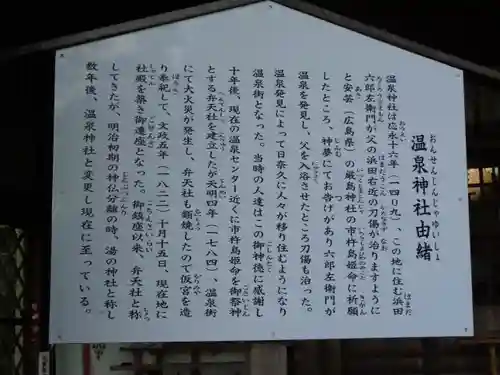 おんせんじんじゃゆいしょ
温泉神社由緒
温泉神社は応永十六年（一四〇九）、この地に住む浜田
六郎左衛門が父の浜田右近の刀傷が治りますように
と安芸（広島県）の厳島神社の市杵島姫命に祈願
したところ、神夢にてお告げがあり六郎左衛門が
温泉を発見し、父を入浴させたところ刀傷も治った。
温泉発見によって日奈久に人々が移り住むようになり
温泉街となった。当時の人達はこの御神徳に感謝し
十年後、現在の温泉センター近くに市杵島姫命を御祭神
とする弁天社を建立したが天明四年（一七八四）、温泉街
にて大火災が発生し、弁天社も類焼したので仮宮を造
り奉祀して、文政五年（一八二二）十月十五日、現在地に
社殿を築き御遷座となった。御鎮座以来、弁天社と称
してきたが、明治初期の神仏分離の時、湯の神社と称し
数年後、温泉神社と変更し現在に至っている。